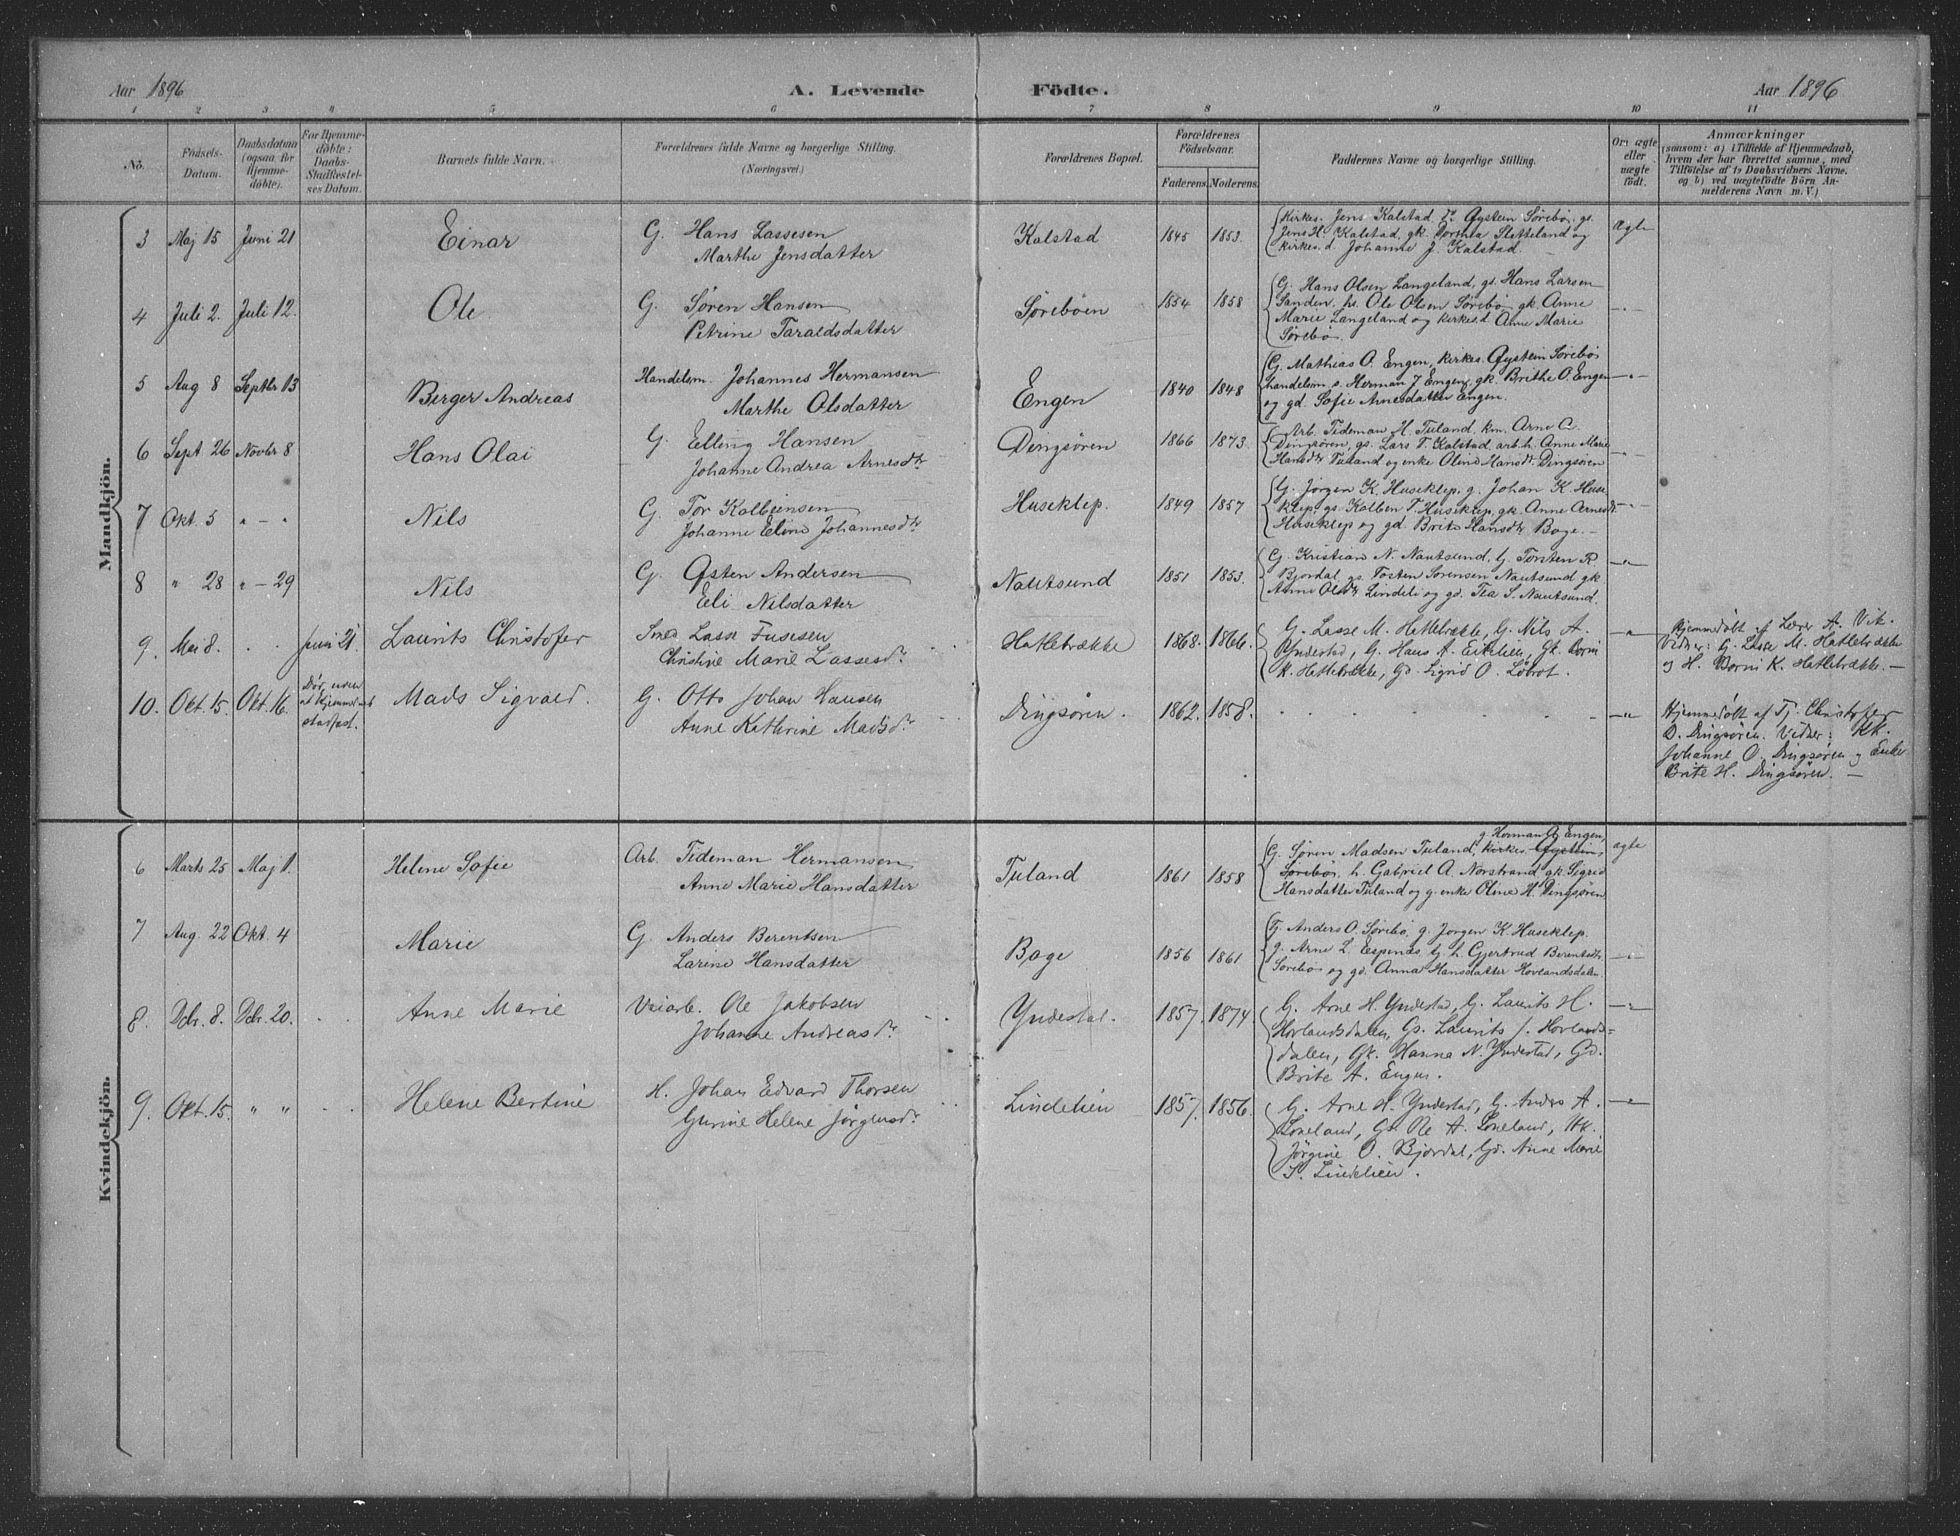 Aar 1896 A. Levende Födte. Aar 1896
1 2 3 4 5 6 7 8 9 10 11
No. Födsels-Datum. Daabsdatum (ogsaa for Hjemmedöbte). For Hjemmedöbte: Daabs-Stadfæstelses Datum. Barnets fulde Navn. Forældrenes fulde Navne og borgerlige Stilling. (Næringsvei.) Forældrenes Bopæl. Forældrenes Födselsaar. Faderens. Moderens. Faddernes Navne og borgerlige Stilling. Om ægte eller uægte födt. Anmærkninger (saasom: a) i Tilfælde af Hjemmedaab, hvem der har forrettet samme, med Tilföielse af to Daabsvidners Navne. og b) ved uægtefödte Börn Anmelderens Navn m. V.)
Mandkjön.
3 Maj 15 Juni 21 Einar G. Hans Lassesen
Marthe Jensdatter
Kalstad 1845 1853.
Kirkes. Jens Kalstad, Øystein Sørebø, gs.
Jens H. Kalstad, gk. Slatteland og
kirkes.d. Johanne J. Kalstad
Ægte
4 Juli 2. Juli 12. Ole G. Søren Hansen
Petrine Taraldsdatter
Sørebøen 1854 1858
G. Hans Olsen Langeland, gs. Hans Larsen
Sanden, ps. Ole Olsen Sørebø, gk. Anne
Marie Langeland og kirkes.d. Anne Marie
Sørebø.
5 Aug 8 Septbr 13 Berger Andreas Handelsm. Johannes Hermansen
Marthe Olsdatter
Engen 1840 1848
G. Mathias O. Engen, kirkes. Øystein Sørebø
handelsm. s. Herman J Engen, gk. Brithe O. Engen
og gd. Sofie Arnesdatter Engen.
6 Sept 26 Novbr 8 Hans Olai G. Elling Hansen
Johanne Andrea Arnesdtr
Dingsøren 1866 1873.
Arb. Tideman H. Tuland, km. Arne C.
Dingsøren, gs. Lars T. Kalstad, arb.h. Anne Marie
Hansdtr Tuland og enke Oline Hansdtr Dingsøren
7 Okt. 5 " – " Nils G. Tor Kolbeinsen
Johanne Eline Johannesdtr
Huseklep. 1849 1857
G. Jørgen K. Huseklep, g. Johan K. Huse
klep, gs. Kolben T. Huseklep, gk. Anne Arnesdtr
Huseklep og gd. Brite Hansdtr Boge. –
8 " 28 " – 29 Nils G. Østen Andersen
Eli Nilsdatter
Nautsund 1851 1853.
G. Kristian N. Nautsund, G. Torsten R.
Bjordal, gs. Tosten Sørensen Nautsund gk
Anne Olsdtr Lindeli og gd. Tea S. Nautsund.
9. Mai 8. Juni 21. Laurits Christofer Smed Lasse Fusesen
Christine Marie Lassesdr
Hatlebrække 1868. 1866.
G. Lasse M. Hatlebrække, G. Nils A.
Yndestad, G. Hans A. Eikelien, Gk. Borni
K. Hatlebrække, Gd. Sigrid O. Løbrot.
Hjemmedøbt af Lærer A. Vik.
Vidner: G. Lasse M. Hatlebrække
og H. Borni K. Hatlebrække. –
10. Okt. 15. Okt. 16. Dør, uden
at Hjemmed. 
stadfæst.
Mads Sigvald. G. Otto Johan Hansen
Anne Kathrine Madsdr
Dingsøren. 1862. 1858.
Hjemmedøbt af Tj. Christofer
O. Dingsøren. Vidner: Kk.
Johanne O. Dingsøren og Enke
Brite H. Dingsøren. –
Kvindekjön.
6 Marts 25 Maj 1. Helene Sofie Arb. Tideman Hermansen
Anne Marie Hansdatter
Tuland 1861 1858
g. Herman J Engen,
G. Søren Madsen Tuland, kirkes. Øystein
Sørebø, h. Gabriel A. Norstrand, gk. Sigrid
Hansdatter Tuland og g. enke Oline H. Dingsøren
ægte
7 Aug. 22 Okt. 4 Marie G. Anders Berentsen
Larine Hansdatter
Boge 1856 1861
G. Anders O. Sørebø, g. Jørgen K. Huseklep,
g. Arne L. Espenæs, G. h. Gjertrud Berentsdtr
Sørebø og gd. Anna Hansdatter Hovlandsdalen
8. Dcbr. 8. Dcbr. 20. Anne Marie Veiarb. Ole Jakobsen
Johanne Andreasdr
Yndestad. 1857. 1874.
G. Arne H. Yndestad, G. Laurits H.
Hovlandsdalen, Gs. Laurits J. Hovlands-
dalen, Gk. Hanna N. Yndestad, Gd.
Brite A. Engen.
9. Okt. 15. " " Helene Bertine H. Johan Edvard Thorsen
Gurine Helene Jørgensdr
Lindelien 1857. 1856.
G. Arne H. Yndestad, G. Anders A.
Loneland, Gs. Ole A. Loneland, Hk.
Jørgine O. Bjordal, Gd. Anne Marie
S. Lindelien.